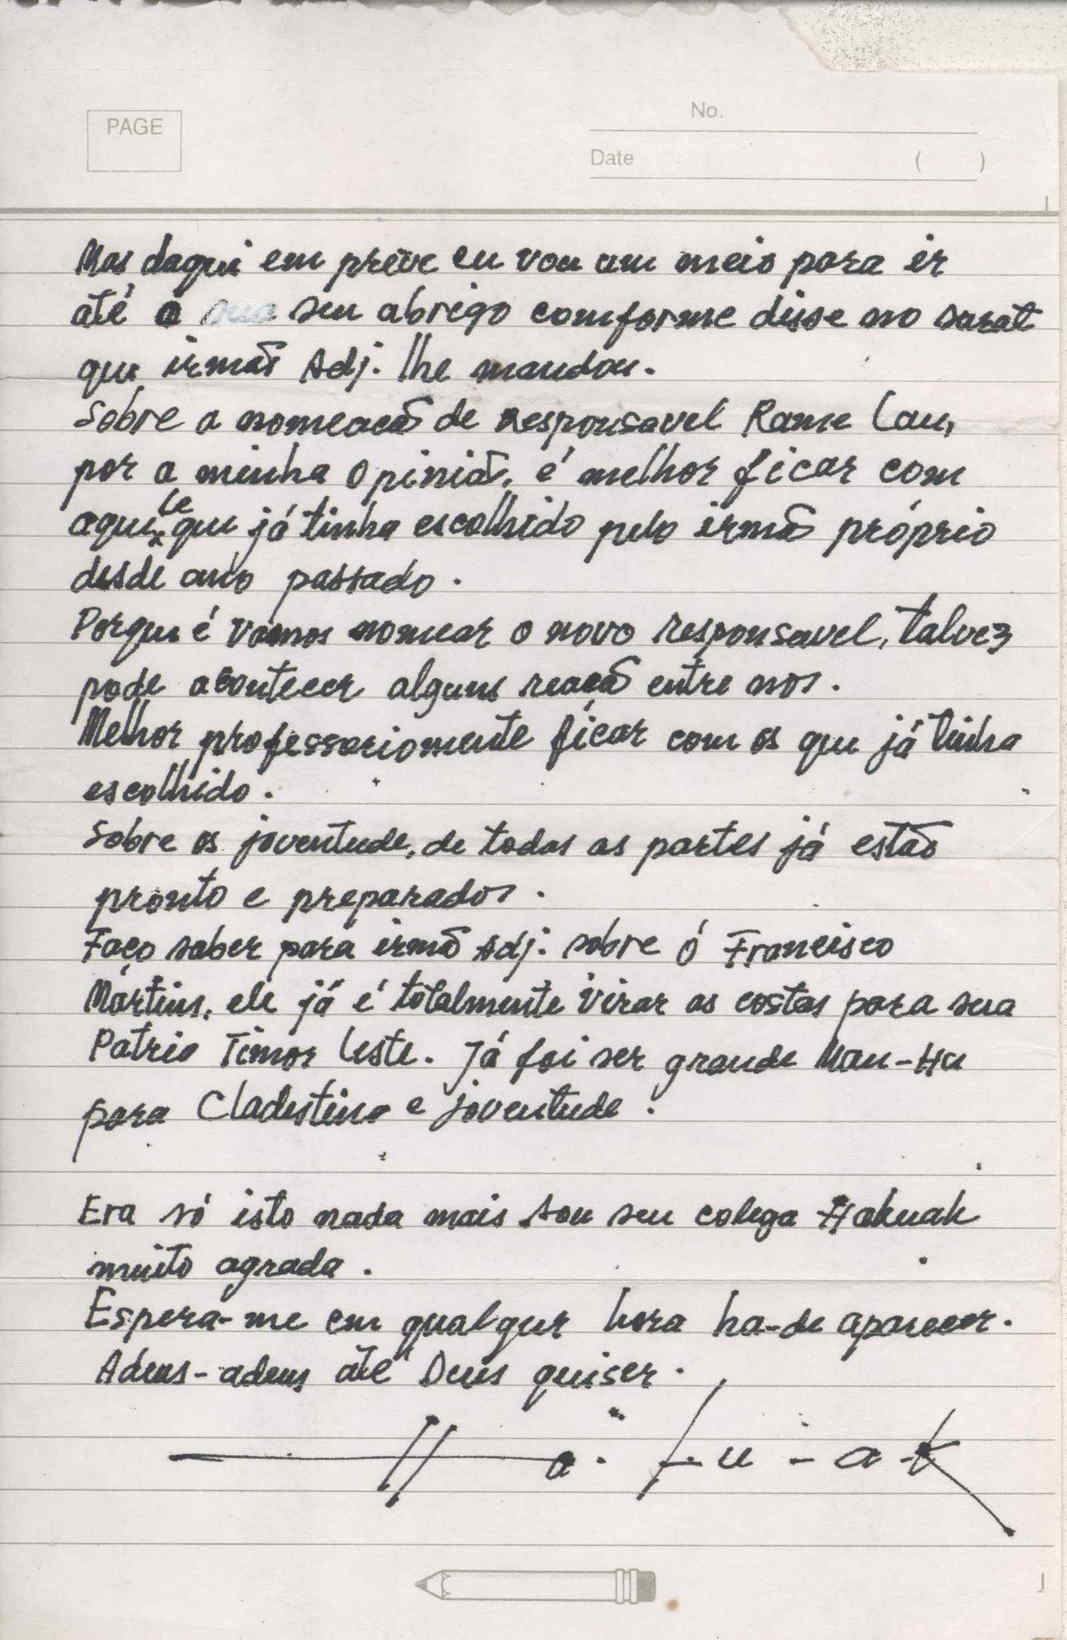 PAGE
No.
Date ( )
Mas daqui em preve eu vou um meio para ir
até o seu abrigo comforme disse no surat
que irmão Adj. lhe mandou.
Sobre a nomeacão de responsavel Rame Lau,
por a minha opinião, é melhor ficar com
aquele que já tinha escolhido pelo irmão próprio
desde ano passado.
Porque é vamos nomear o novo responsavel, talvez
pode acontecer alguns reacão entre nos.
Melhor professoriomente ficar com os que já tinha
escolhido.
Sobre os joventude, de todas as partes já estão
pronto e preparados.
Faço saber para irmão Adj. sobre ó Francisco
Martins, ele já é totalmente virar as costas para sua
Patria Timor Leste. Já foi ser grande Mau-Hu
para Cladestina e joventude.
Era só isto nada mais sou seu colega Hakuak
muito agrada.
Espera-me em qualquer hora ha-de aparecer.
Adeus-adeus até Deus quiser.